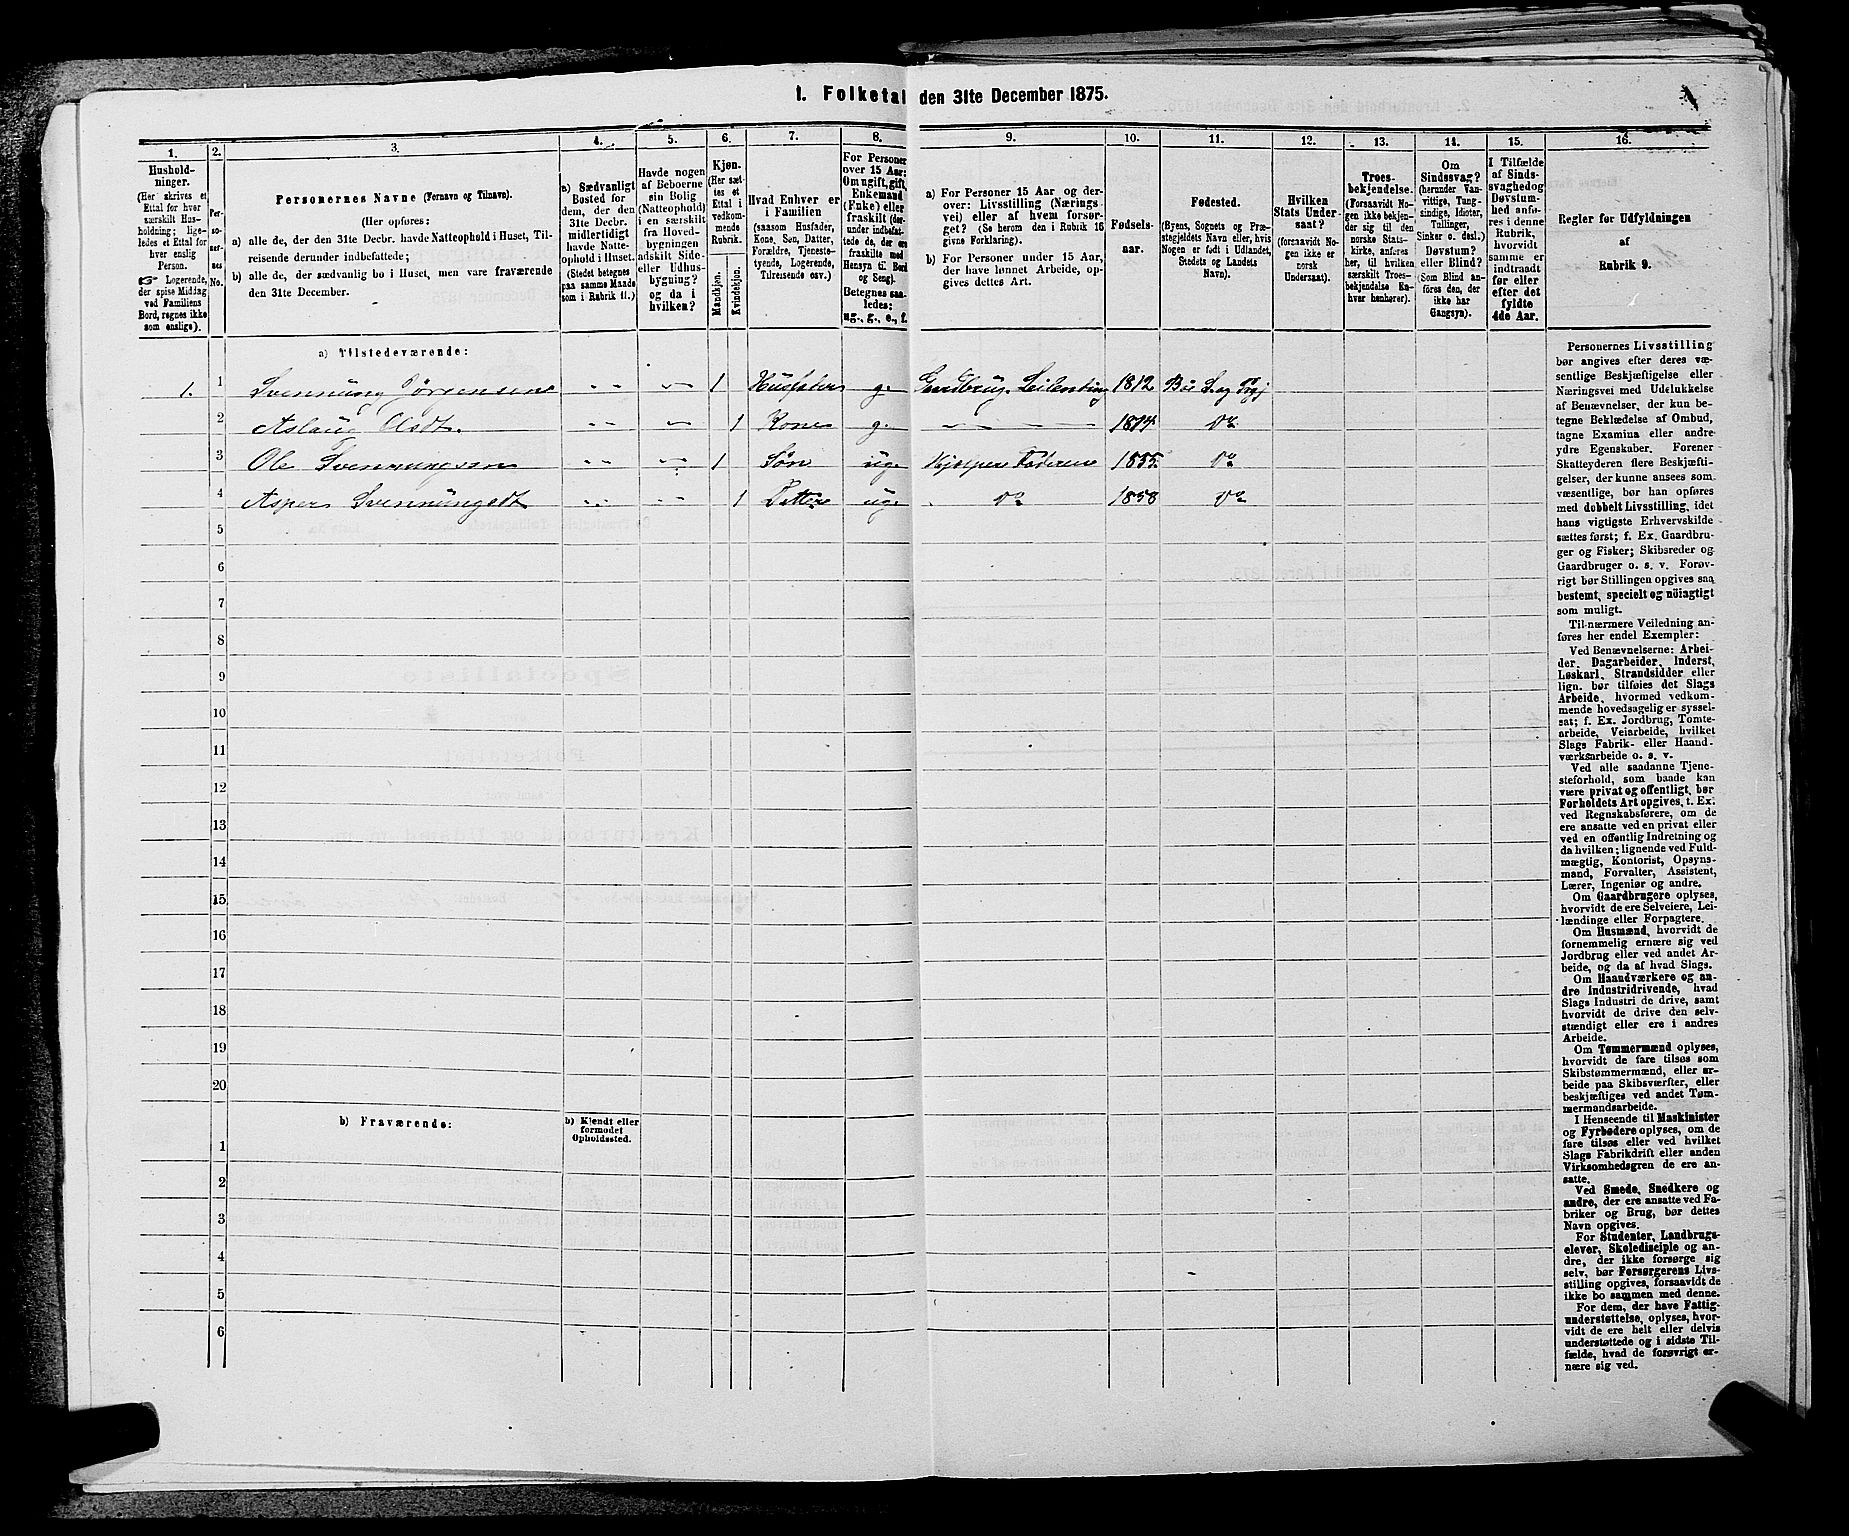 1. Folketal den 31te December 1875.
1. 2. 3. 4. 5. 6. 7. 8. 9. 10. 11. 12. 13. 14. 15. 16.
Hushold-
ninger.
(Her skrives et
Ettal for hver
særskilt Hus-
holdning; lige-
ledes et Ettal for
hver enslig
Person.
☞ Logerende,
der spise Middag
ved Familiens
Bord, regnes ikke
som enslige).
Per-
so-
ner-
ses
No.
Personernes Navne (Fornavn og Tilnavn).
(Her opføres:
a) alle de, der den 31te Decbr. havde Natteophold i Huset, Til-
reisende derunder indbefattede;
b) alle de, der sædvanlig bo i Huset, men vare fraværende
den 31te December.
a) Sædvanligt
Bosted for
dem, der den
31te Decbr.
midlertidigt
havde Natte-
ophold i Huset.
(Stedet betegnes
paa samme Maade
som i Rubrik 11.)
Havde nogen
af Beboerne
sin Bolig
(Natteophold)
i en særskilt
fra Hoved-
bygningen
adskilt Side-
eller Udhus-
bygning?
og da i
hvilken?
Kjøn.
(Her sæt-
tes et
Ettal i
vedkom-
mende
Rubrik.
Mandkjøn.
Kvindekjøn.
Hvad Enhver er
i Familien
(saasom Husfader,
Kone, Søn, Datter,
Forældre, Tjeneste-
tyende, Logerende,
Tilreisende osv.)
For Personer
over 15 Aar:
Om ugift, gift,
Enkemand
(Enke) eller
fraskilt (der-
under indbefat-
tede de, der ere
fraskilte med
Hensyn til Bord
og Seng).
Betegnes saa-
ledes:
ug., g., e., f.
a) For Personer 15 Aar og der-
over: Livsstilling (Nærings-
vei) eller af hvem forsør-
get? (Se herom den i Rubrik 16
givne Forklaring).
b) For Personer under 15 Aar,
der have lønnet Arbeide, op-
gives dettes Art.
Fødsels-
aar.
Fødested.
(Byens, Sognets og Præ-
stegjeldets Navn eller, hvis
Nogen er født i Udlandet,
Stedets og Landets
Navn).
Hvilken
Stats Under-
saat?
(forsaavidt No-
gen ikke er
norsk
Undersaat).
Troes-
bekjendelse.
(Forsaavidt No-
gen ikke bekjen-
der sig til den
norske Stats-
kirke, anføres
her, til hvilken
særskilt Troes-
bekjendelse En-
hver henhører).
Om
Sindssvag?
(herunder Van-
vittige, Tung-
sindige, Idioter,
Tullinger,
Sinker o. desl.)
Døvstum?
eller Blind?
(Som Blind an-
føres den, der
ikke har
Gangsyn).
I Tilfælde
af Sinds-
svaghed og
Døvstum-
hed anfø-
res i denne
Rubrik,
hvorvidt
samme er
indtraadt
før eller
efter det
fyldte
4de Aar.
Regler for Udfyldningen
af
Rubrik 9.
a) Tilstedeværende:
1. 1 Svennung Jörgensen - - - - 1 Husfader g. Gardbrug. Leilending 1812 Bø
2 Aslaug Olsdt. - - - - 1 Kone g. - - - 1814 Do
3 Ole Svennungsen - - - - 1 Søn ug. Hjelper Faderen 1855. Do
4 Asper Svennungsdt - - - - 1 Datter ug Do 1858 Do
5
6
7
8
9
10
11
12
13
14
15
16
17
18
19
20
b) Fraværende:
b) Kjendt eller
formodet
Opholdssted.
1
2
3
4
5
6
Personernes Livsstilling
bør angives efter deres væ-
sentlige Beskjæftigelse eller
Næringsvei med Udelukkelse
af Benævnelser, der kun be-
tegne Beklædelse af Ombud,
tagne Examina eller andre
ydre Egenskaber. Forener
Skatteyderen flere Beskjæfti-
gelser, der kunne ansees som
væsentlige, bør han opføres
med dobbelt Livsstilling, idet
hans vigtigste Erhvervskilde
sættes først; f. Ex. Gaardbru-
ger og Fisker; Skibsreder og
Gaardbruger o. s. v. Forøv-
rigt bør Stillingen opgives saa
bestemt, specielt og nöiagtigt
som muligt.
Til nærmere Veiledning an-
føres her endel Exempler:
Ved Benævnelserne: Arbei-
der, Dagarbeider, Inderst,
Løskarl, Strandsidder eller
lign. bør tilføies det Slags
Arbeide, hvormed vedkom-
mende hovedsagelig er syssel-
sat; f. Ex. Jordbrug, Tomte-
arbeide, Veiarbeide, hvilket
Slags Fabrik- eller Haand-
værksarbeide o. s. v.
Ved alle saadanne Tjene-
steforhold, som baade kan
være privat og offentligt, bør
Forholdets Art opgives, t. Ex.
ved Regnskabsførere, om de
ere ansatte ved en privat eller
ved en offentlig Indretning og
da hvilken; lignende ved Fuld-
mægtig, Kontorist, Opsyns-
mand, Forvalter, Assistent,
Lærer, Ingeniør og andre.
Om Gaardbrugere oplyses,
hvorvidt de ere Selveiere, Lei-
lændinge eller Forpagtere.
Om Husmænd, hvorvidt de
fornemmelig ernære sig ved
Jordbrug eller ved andet Ar-
beide, og da af hvad Slags.
Om Haandværkere og an-
dre Industridrivende, hvad
Slags Industri de drive, samt
hvorvidt de drive den selv-
stændigt eller ere i andres
Arbeide.
Om Tømmermænd oplyses,
hvorvidt de fare tilsøs som
Skibstømmermænd, eller ar-
beide paa Skibsværfter, eller
beskjæftiges ved andet Tøm-
mermandsarbeide.
I Henseende til Maskinister
og Fyrbødere oplyses, om de
fare tilsøs eller ved hvilket
Slags Fabrikdrift eller anden
Virksomhedsgren de ere an-
satte.
Ved Smede, Snedkere og
andre, der ere ansatte ved Fa-
briker og Brug, bør dettes
Navn opgives.
For Studenter, Landbrugs-
elever, Skoledisciple og an-
dre, der ikke forsørge sig
selv, bør Forsørgerens Livs-
stilling opgives, forsaavidt de
ikke bo sammen med denne.
For dem, der have Fattig-
understøttelse, oplyses, hvor-
vidt de ere helt eller delvis
understøttede og i sidste Til-
fælde, hvad de forøvrigt er-
nære sig ved.